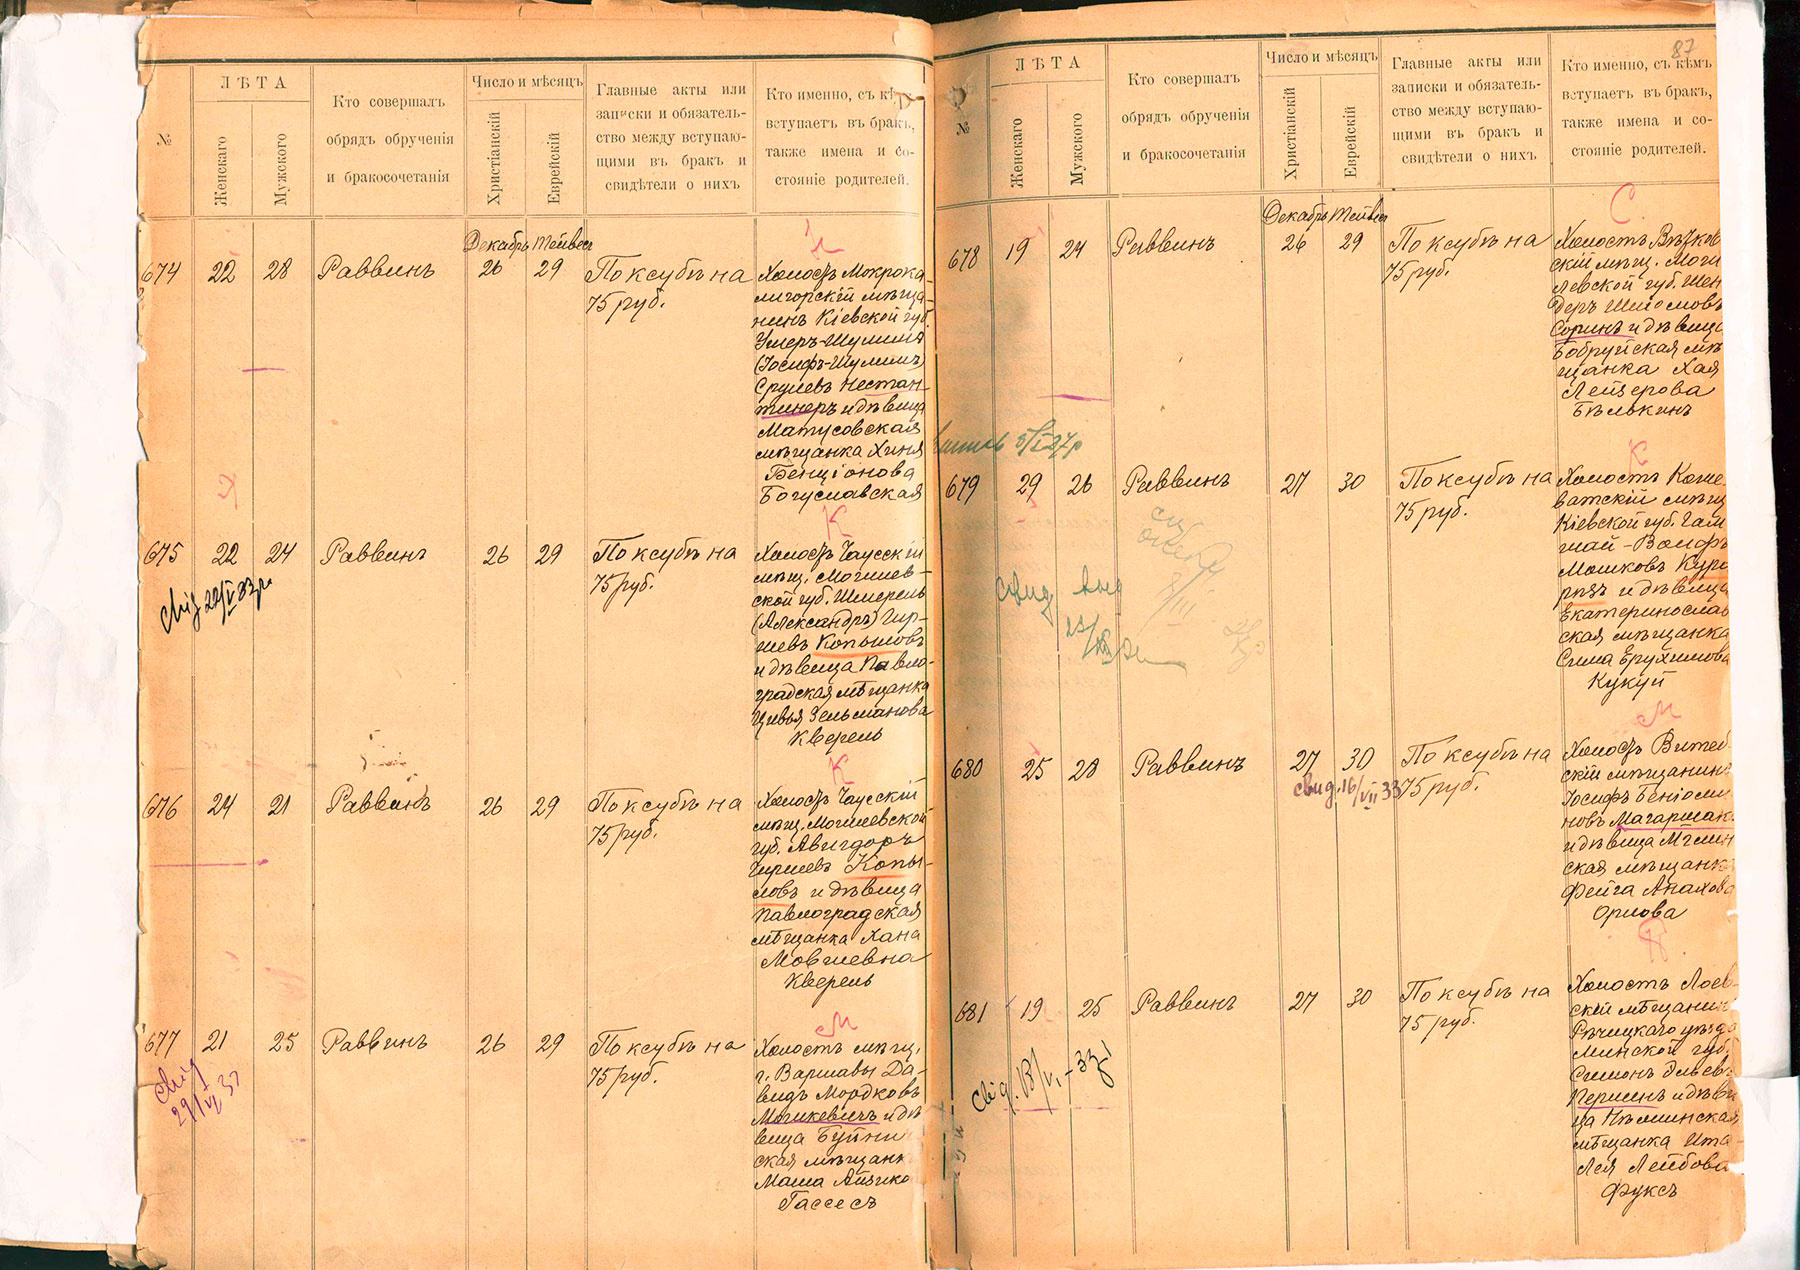 №
ЛѢТА
Женскаго
Мужского
Кто совершалъ
обрядъ обрученія
и бракосочетанія
Число и мѣсяцъ
Христіанскій
Еврейскій
Главные акты или
записки и обязатель-
ство между вступаю-
щими въ бракъ и
свидѣтели о нихъ
вступаетъ въ бракъ,
также имена и со-
стояніе родителей.
Декабрь Тейвесъ
674 22 28 Раввинъ 26 29 По ксубѣ на
75 руб.
Холостъ Мокрока-
лигорскій мѣща-
нинъ Кіевской губ.
(Іосифъ-Шулимъ)
Срулевъ Нестан-
тинеръ и дѣвица
Матусовская
мѣщанка Хиня
Бенціонова
Богуславская
К
675 22 24 Раввинъ 26 29 По ксубѣ на
75 руб.
Холостъ Чаусскій
мѣщ. Могилев-
ской губ. Шмерель
(Александръ) Гир-
шевъ Копыловъ
и дѣвица Павло-
градская мѣщанка
Цивья Зельманова
Кверель
К
676 24 21 Раввинъ 26 29 По ксубѣ на
75 руб.
Холостъ Чаусскій
мѣщ. Могилевской
губ. Авигдоръ
Гиршевъ Копы-
ловъ и дѣвица
Павлоградская
мѣщанка Хана
Мовшевна
Кверель
М
677 21 25 Раввинъ 26 29 По ксубѣ на
75 руб.
Холостъ мѣщ.
г. Варшавы Да-
видъ Мордковъ
и дѣ
вица
ская мѣщанк
Маша Айзико
Гассесъ
87
№
ЛѢТА
Женскаго
Мужского
Кто совершалъ
обрядъ обрученія
и бракосочетанія
Число и мѣсяцъ
Христіанскій
Еврейскій
Главные акты или
записки и обязатель-
ство между вступаю-
щими въ бракъ и
свидѣтели о нихъ
Кто именно, съ кѣмъ
вступаетъ въ бракъ,
также имена и со-
стояніе родителей.
С.
Декабрь Тейвесъ
678 19 24 Раввинъ 26 29 По ксубѣ на
75 руб.
Холостъ
скій мѣщ. Моги
левской губ. Шен
деръ Шоломовъ
Соринъ и дѣвица
Бобруйская мѣ
щанка Хая
Лейзерова
Бѣлькинъ
К
679 29 26 Раввинъ 27 30 По ксубѣ на
75 руб.
Холостъ Коше
ватскій мѣщ
Кіевской губ. Гам
Мошковъ
и дѣвица
Екатеринослав
ская мѣщанка
Сима Ерухимова
Кукуй
М
680 25 28 Раввинъ 27 30 По ксубѣ на
75 руб.
свид. 16/VII 33
Холостъ Витеб
скій мѣщанинъ
Іосифъ Беніоми
новъ Магаршак
и дѣвица Мглин
ская мѣщанка
Фейга
Орлова
681 19 25 Раввинъ 27 30 По ксубѣ на
75 руб.
Холостъ Лоев-
скій мѣщанинъ
Рѣчицкаго уѣзда
Минской губ.
Симонъ
и дѣви
ца
мѣщанка Ита-
Лея Лейбова
Фуксъ